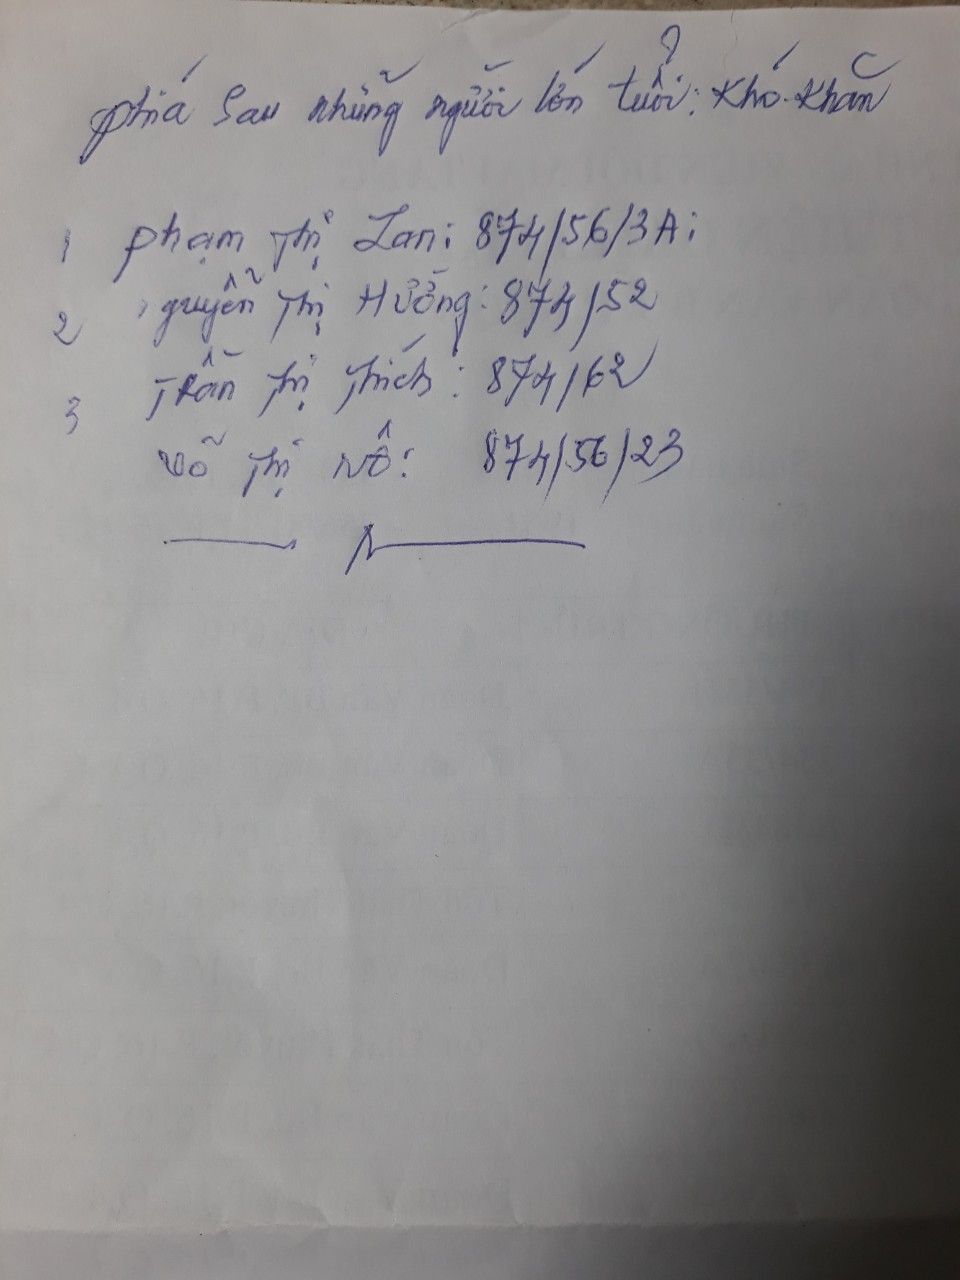 phía sau những người lớn tuổi: Khó. Khăn
1 phạm Thị Lan: 874/56/3A:
2 Nguyễn Thị Hưởng: 874/52
3 Trần Thị Thích: 874/62
Võ Thị Nô: 874/56/23